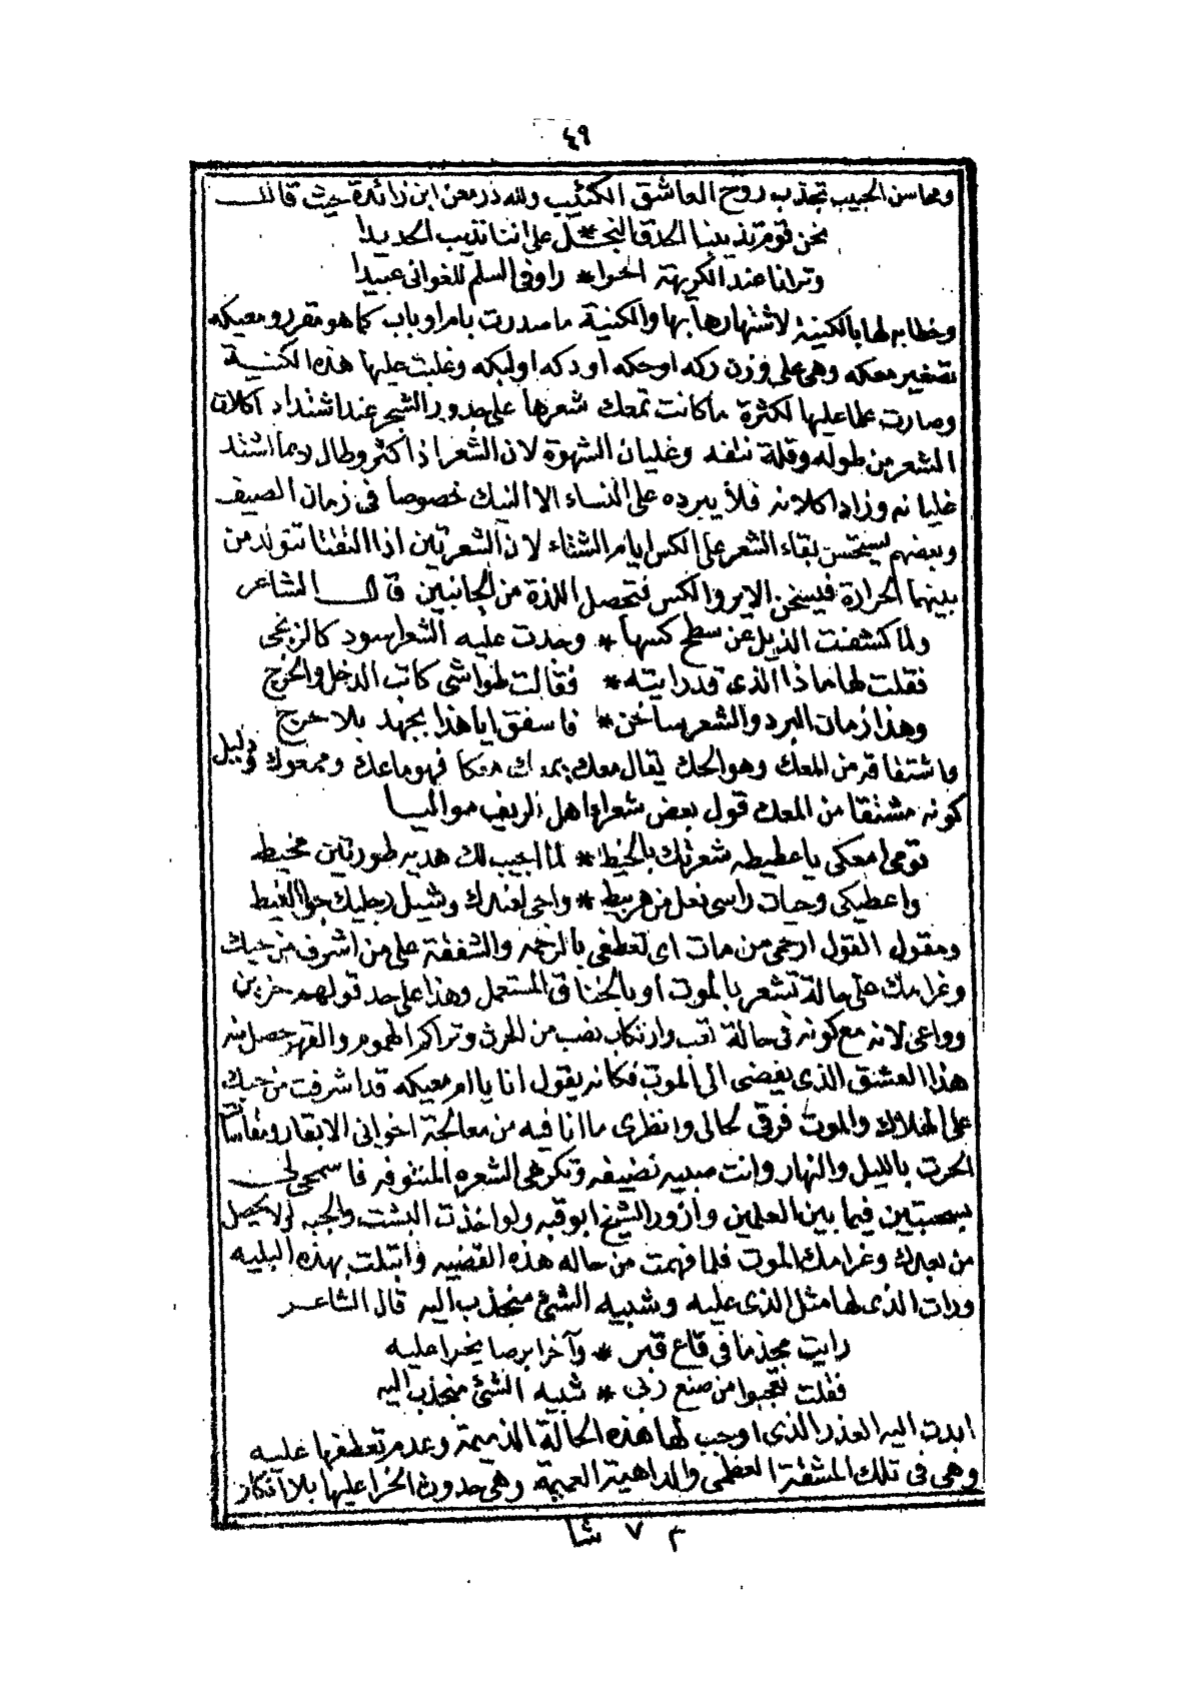 ٤٩
ومحاسن الحبيب تجذب روح العاشق الكئيب ولله در معن ابن زائدة حيث قال
نحن قوم تذيبنا الحدق النجـ * ـل على اننا نذيب الحديدا
وترانا عند الكريهة احرا * را وفى السلم للغوانى عبيدا
وخطابه لها بالكنية لاشتهارها بها والكنية ما صدرت بام او باب كما هو مقرر ومعيكه
تصغير معكه وهى على وزن ركه او حكه او دكه او لبكه وغلبت عليها هذه الكنية
وصارت علما عليها لكثرة ما كانت تمعك شعرها على جدور الشجر عند اشتداد اكلان
الشعر من طوله وقلة نتفه وغليان الشهوة لان الشعر اذا كثر وطال ربما اشتد
غليانه وزاد اكلانه فلا يبرده على النساء الا النيك خصوصا فى زمان الصيف
وبعضهم يستحسن بقاء الشعر على الكس ايام الشتاء لان الشعرتين اذا التفتا تتولد من
بينهما الحرارة فيسخن الاير والكس فتحصل اللذة من الجانبين قال الشاعر
ولما كشفت الذيل عن سطح كسها * وجدت عليه الشعر اسود كالزنجى
فقلت لها ماذا الذى قد رايته * فقالت طواشى كاتب الدخل والخرج
وهذا زمان البرد والشعر ساخن * فاسفق ايا هذا بجهد بلا حرج
واشتقاقه من المعك وهو الحك يقال معك يمعك معكا فهو ماعك وممعوك ودليل
كونه مشتقا من المعك قول بعض شعراء اهل الريف مواليا
قومى امعكى يا عطيطه شعرتك بالخيط * لما اجيب لك هديه طورتين مخيط
واعطيكى وحيات راسى نعل من هربيط * واجى لعندك وشيل رجليك جوا الغيط
ومقول القول ارخى من مات اى تعطفى بالرحمه والشفقة على من اشرف من حبك
وغرامك على حالة تشعر بالموت او بالخناق المستعمل وهذا على حد قولهم حزين
وواعى لانه مع كونه فى حالة تعب وارتكاب نصب من الحرث وتراكم الهموم والقهر حصل منه
هذا العشق الذى يفضى الى الموت فكانه يقول انا يا ام معيكه قد اشرفت من حبك
على الهلاك والموت فرقى لحالى وانظرى ما انا فيه من معالجة اخوانى الابقار ومقاسات
الحرث بالليل والنهار وانت صبيه نضيفه وتكرهى الشعره المنتوفه فاسمحى لى
بسحبتين فيما بين العلمين وازور الشيخ ابو قبه ولو اخذت البشت والجبه لولا يحصل
من بعدك وغرامك الموت فلما فهمت من حاله هذه القضيه وابتلت بهذه البليه
ورات الذى لها مثل الذى عليه وشبيه الشئ منجذب اليه قال الشاعر
رايت مجذما فى قاع قبر * وآخر ابرصا يخرا عليه
فقلت تعجبوا من صنع ربى * شبيه الشئ منجذب اليه
ابدت اليه العذر الذى اوجب لها هذه الحالة الذميمة وعدم تعطفها عليه
وهى فى تلك المشقة العظمى والداهية العميمة وهى حدوث الخرا عليها بلا انكار
م ٧ شا